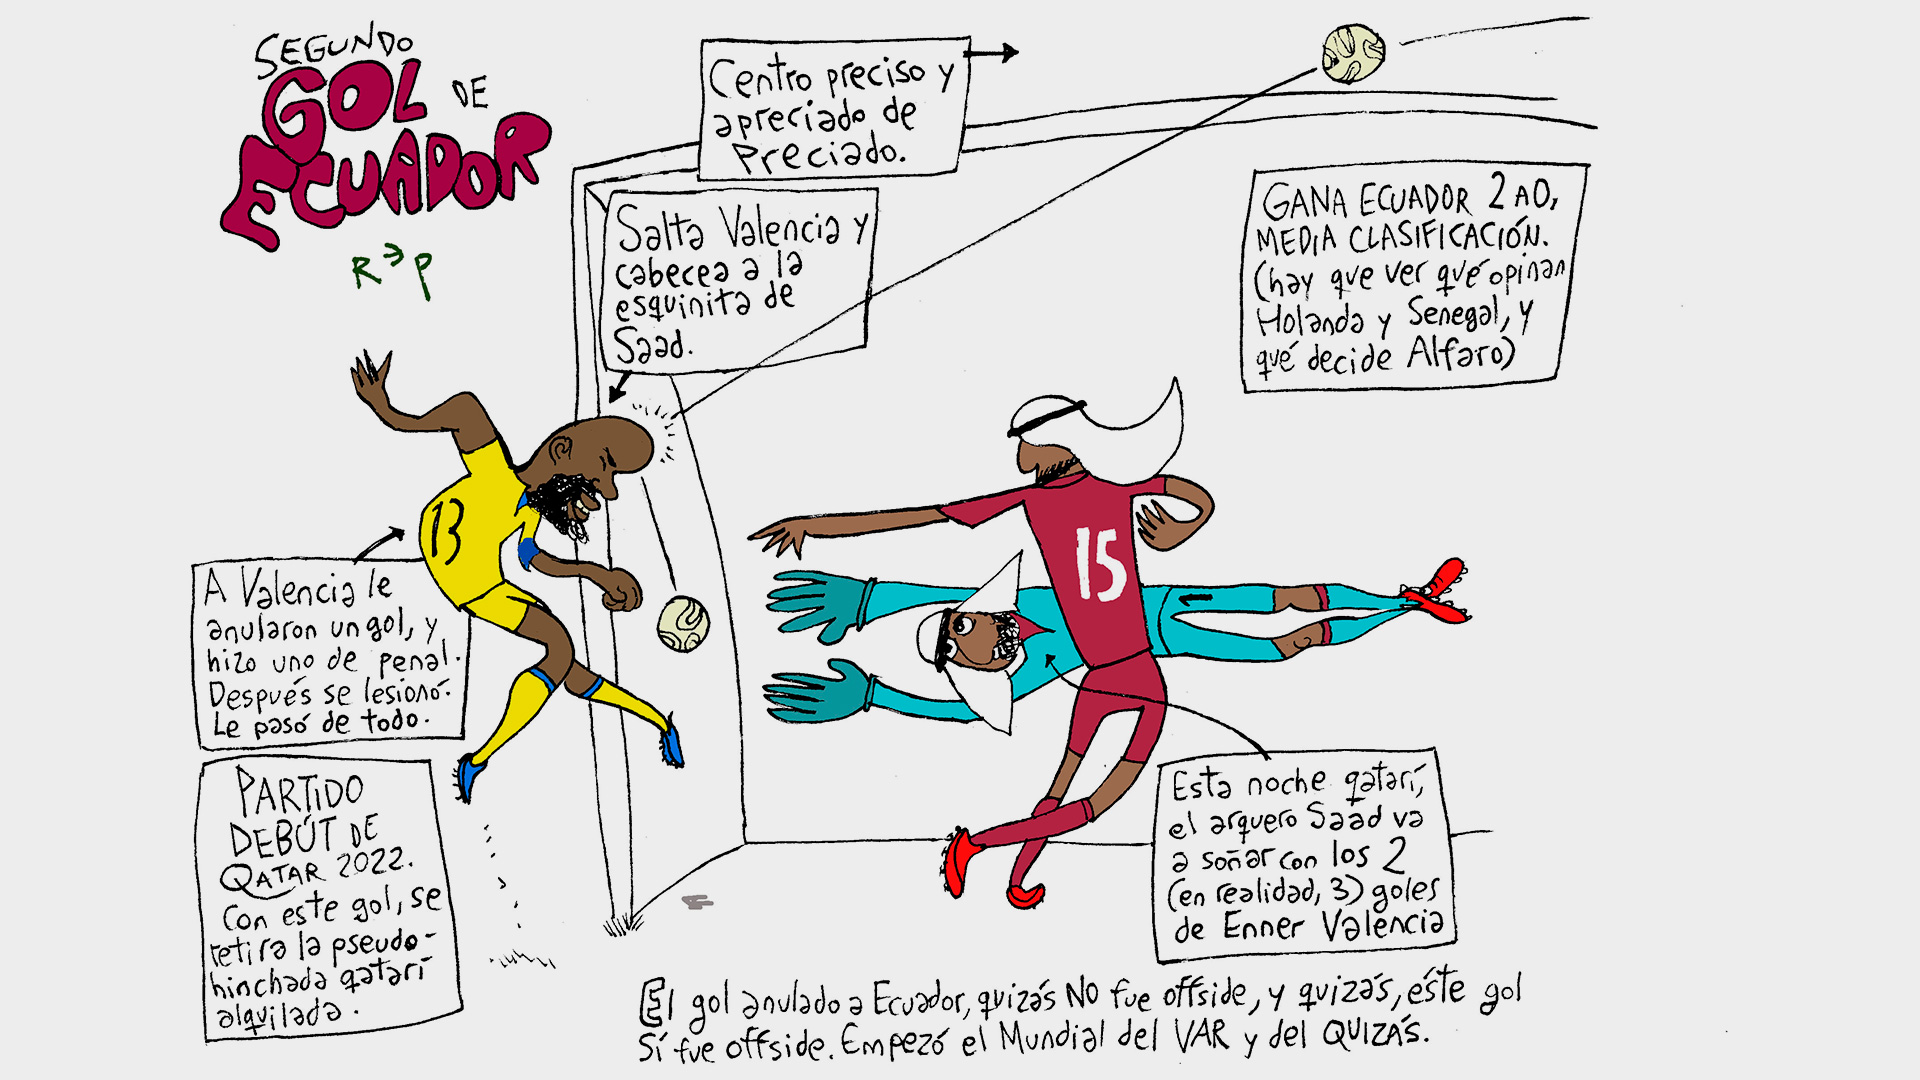 SEGUNDO
GOL DE
ECUADOR
R→P
Centro preciso y
apreciado de
Preciado.
Salta Valencia y
cabecea a la
esquinita de
Saad.
GANA ECUADOR 2 A 0,
MEDIA CLASIFICACIÓN.
(hay que ver qué opinan
Holanda y Senegal, y
qué decide Alfaro)
13
15
A Valencia le
anularon un gol, y
hizo uno de penal.
Después se lesionó.
Le pasó de todo.
PARTIDO
DEBÚT DE
QATAR 2022.
Con este gol, se
retira la pseudo-
hinchada qatarí
alquilada.
Esta noche qatarí,
el arquero Saad va
a soñar con los 2
(en realidad, 3) goles
de Enner Valencia
El gol anulado a Ecuador, quizás NO fue offside, y quizás, éste gol
Sí fue offside. Empezó el Mundial del VAR y del QUIZÁS.